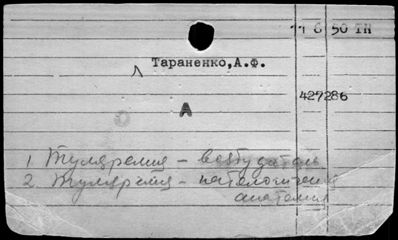 11 6 50 ТН
Тараненко,А.Ф.
А
427286
1 Туляремия – возбудитель
2 Туляремия – патологическая
анатомия